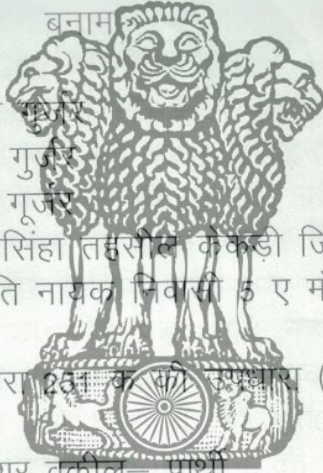 बनाम
गुर्जर
गुर्जर
गूजर
सिंहा तहसील केकड़ी जि
ति नायक निवासी 5 ए मं
रा 251 क की उपधारा (
वकील– प्रार्थी